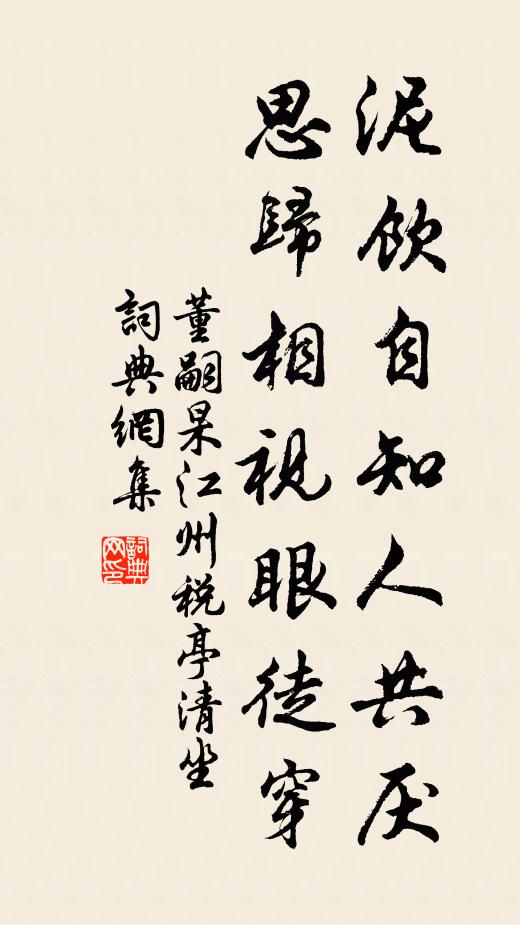 泥飲自知人共厌
思歸相視眼徒穿
董嗣杲江州税亭清坐
詞典網集
詞典网印